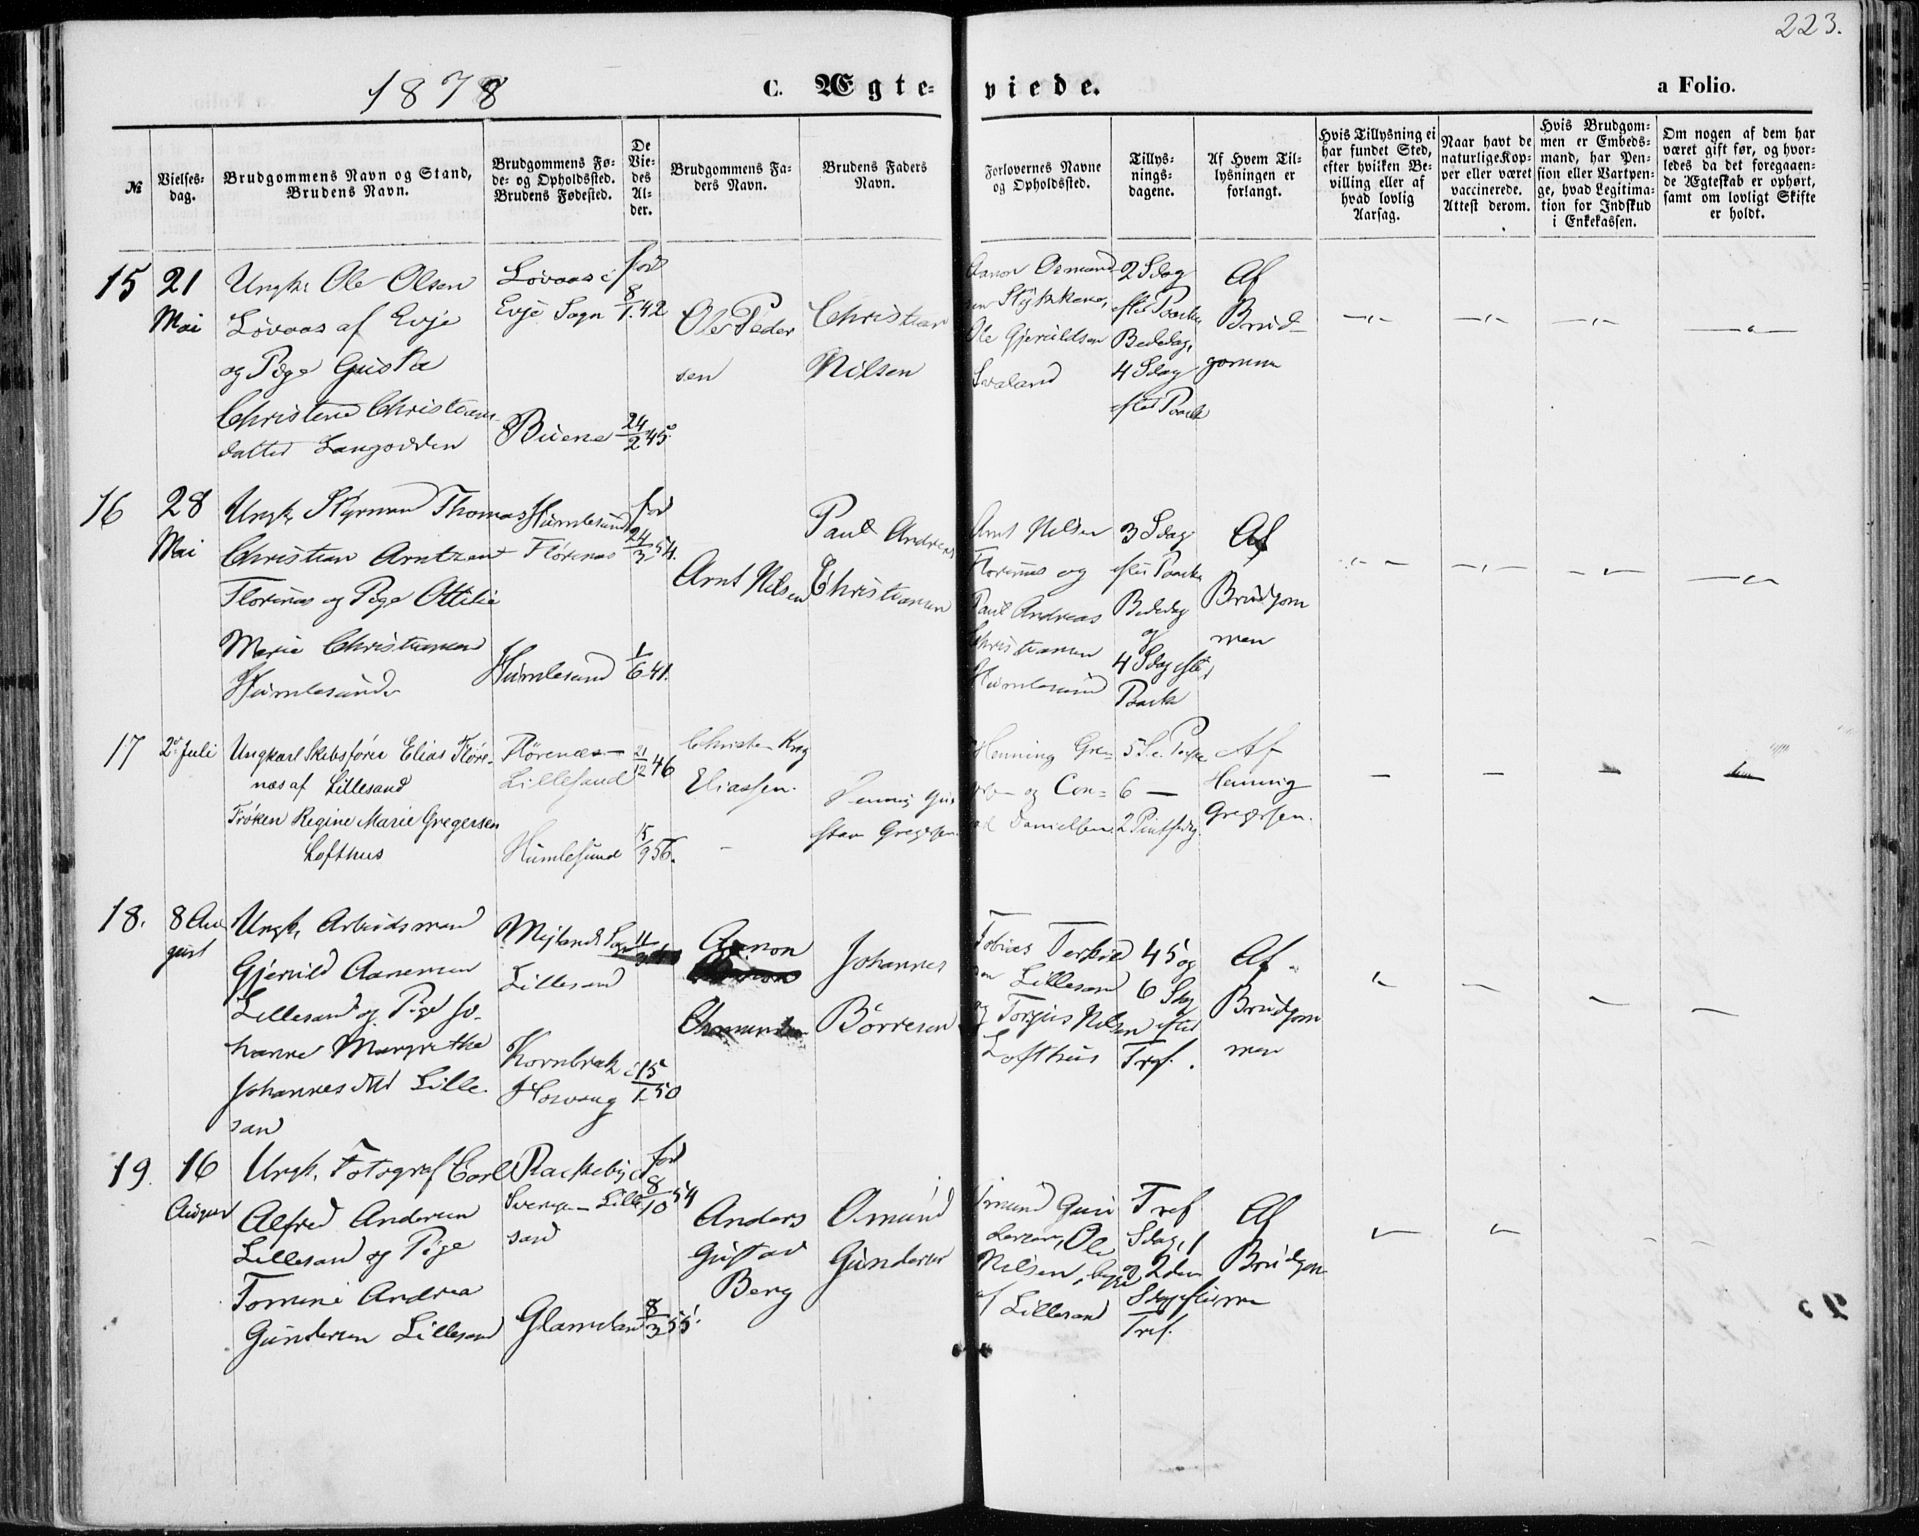 223.
1878
C. Ægte- viede.
a Folio.
№
Vielses-
dag.
Brudgommens Navn og Stand,
Brudens Navn.
Brudgommens Fø-
de- og Opholdssted.
Brudens Fødested.
De
Vie-
des
Al-
der.
Brudgommens Fa-
ders Navn.
Brudens Faders
Navn.
Forlovernes Navne
og Opholdssted.
Tillys-
nings-
dagene.
Af Hvem Til-
lysningen er
forlangt.
Hvis Tillysning ei
har fundet Sted,
efter hvilken Be-
villing eller af
hvad lovlig
Aarsag.
Naar havt de
naturlige Kop-
per eller været
vaccinerede.
Attest derom.
Hvis Brudgom-
men er Embeds-
mand, har Pen-
sion eller Vartpen-
ge, hvad Legitima-
tion for Indskud
i Enkekassen.
Om nogen af dem har
været gift før, og hvor-
ledes da det foregaaen-
de Ægteskab er ophørt,
samt om lovligt Skifte
er holdt.
15
21
Mai
Ungk. Ole Olsen
Løvaas af Evje
og Pige Gusta
Christene Christians
datter Langodden
Løvaas i
Evje Sogn
Buene
fød
8/1 42
24/2 45.
Ole Peder
sen
Christian
Nilsen
Aanon Osmund
sen Stykkene,
Ole Gjeruldsen
Svaland
2 Sdag
efter Paaske
Bededag,
4 Sdag
efter Paask
Af
Brud-
gomme
16
28
Mai
Ungk. Styrman Thomas
Christian Arntzen
Florenæs og Pige Ottilie
Marie Christiansen
Humlesund
Humlesund
Flørenæs
Humlesund
fød
24/3 54.
1/6 41.
Arnt Nilsen
Paul Andreas
Christiansen
Arnt Nilsen
Florenæs og
Paul Andreas
Christiansen
Humlesund
3 Sdag
efter Paaske
Bededag
og
4 Sdag efter
Paask
Af
Brudgom
men
17
2d Juli
Ungkarl Skibsfører Elias Fløre-
næs af Lillesand
Frøken Regine Marie Gregersen
Lofthus
Flørenæs-
Lillesand
Humlesund
21/12 46
15/9 56.
Christen Krog
Eliassen.
Henning Gus
stav Gregersen.
Henning Gre-
gersen og Con-
rad Danielsen.
5 S. e. Paaske
6 —
2 Pintsedag.
Af
Henning
Gregersen.
18.
8 Au
gust
Ungk. Arbeidsmand
Gjeruld Aanensen
Lillesand og Pige Jo-
hanne Margrethe
Johannesdtr Lille
sand
Mejlands Sogn
Lillesand
Kornbrek i
Høvaag
15/1 50
Aanon
Osmundsen
Johannes
Børresen
Tobias Terkild
sen Lillesand
og Torjus Nilsen
Lofthus
4 5 og
6 Sdag
efter
Tref.
Af
Brudgom
men
19.
16
August
Ungk. Fotograf Carl
Alfred Andersen
Lillesand og Pige
Tomine Andrea
Gundersen Lillesand
Rackeby i
Sverige - Lille
sand
Glamsland
fød
8/10 54
8/3 55.
Anders
Gustav
Berg
Osmund
Gundersen
Osmund Gun
dersen, Ole
Nilsen, begge
af Lillesand
Tref
Sdag, 1
og 2den
Sdag efter
Tref.
Af
Brudgom
men